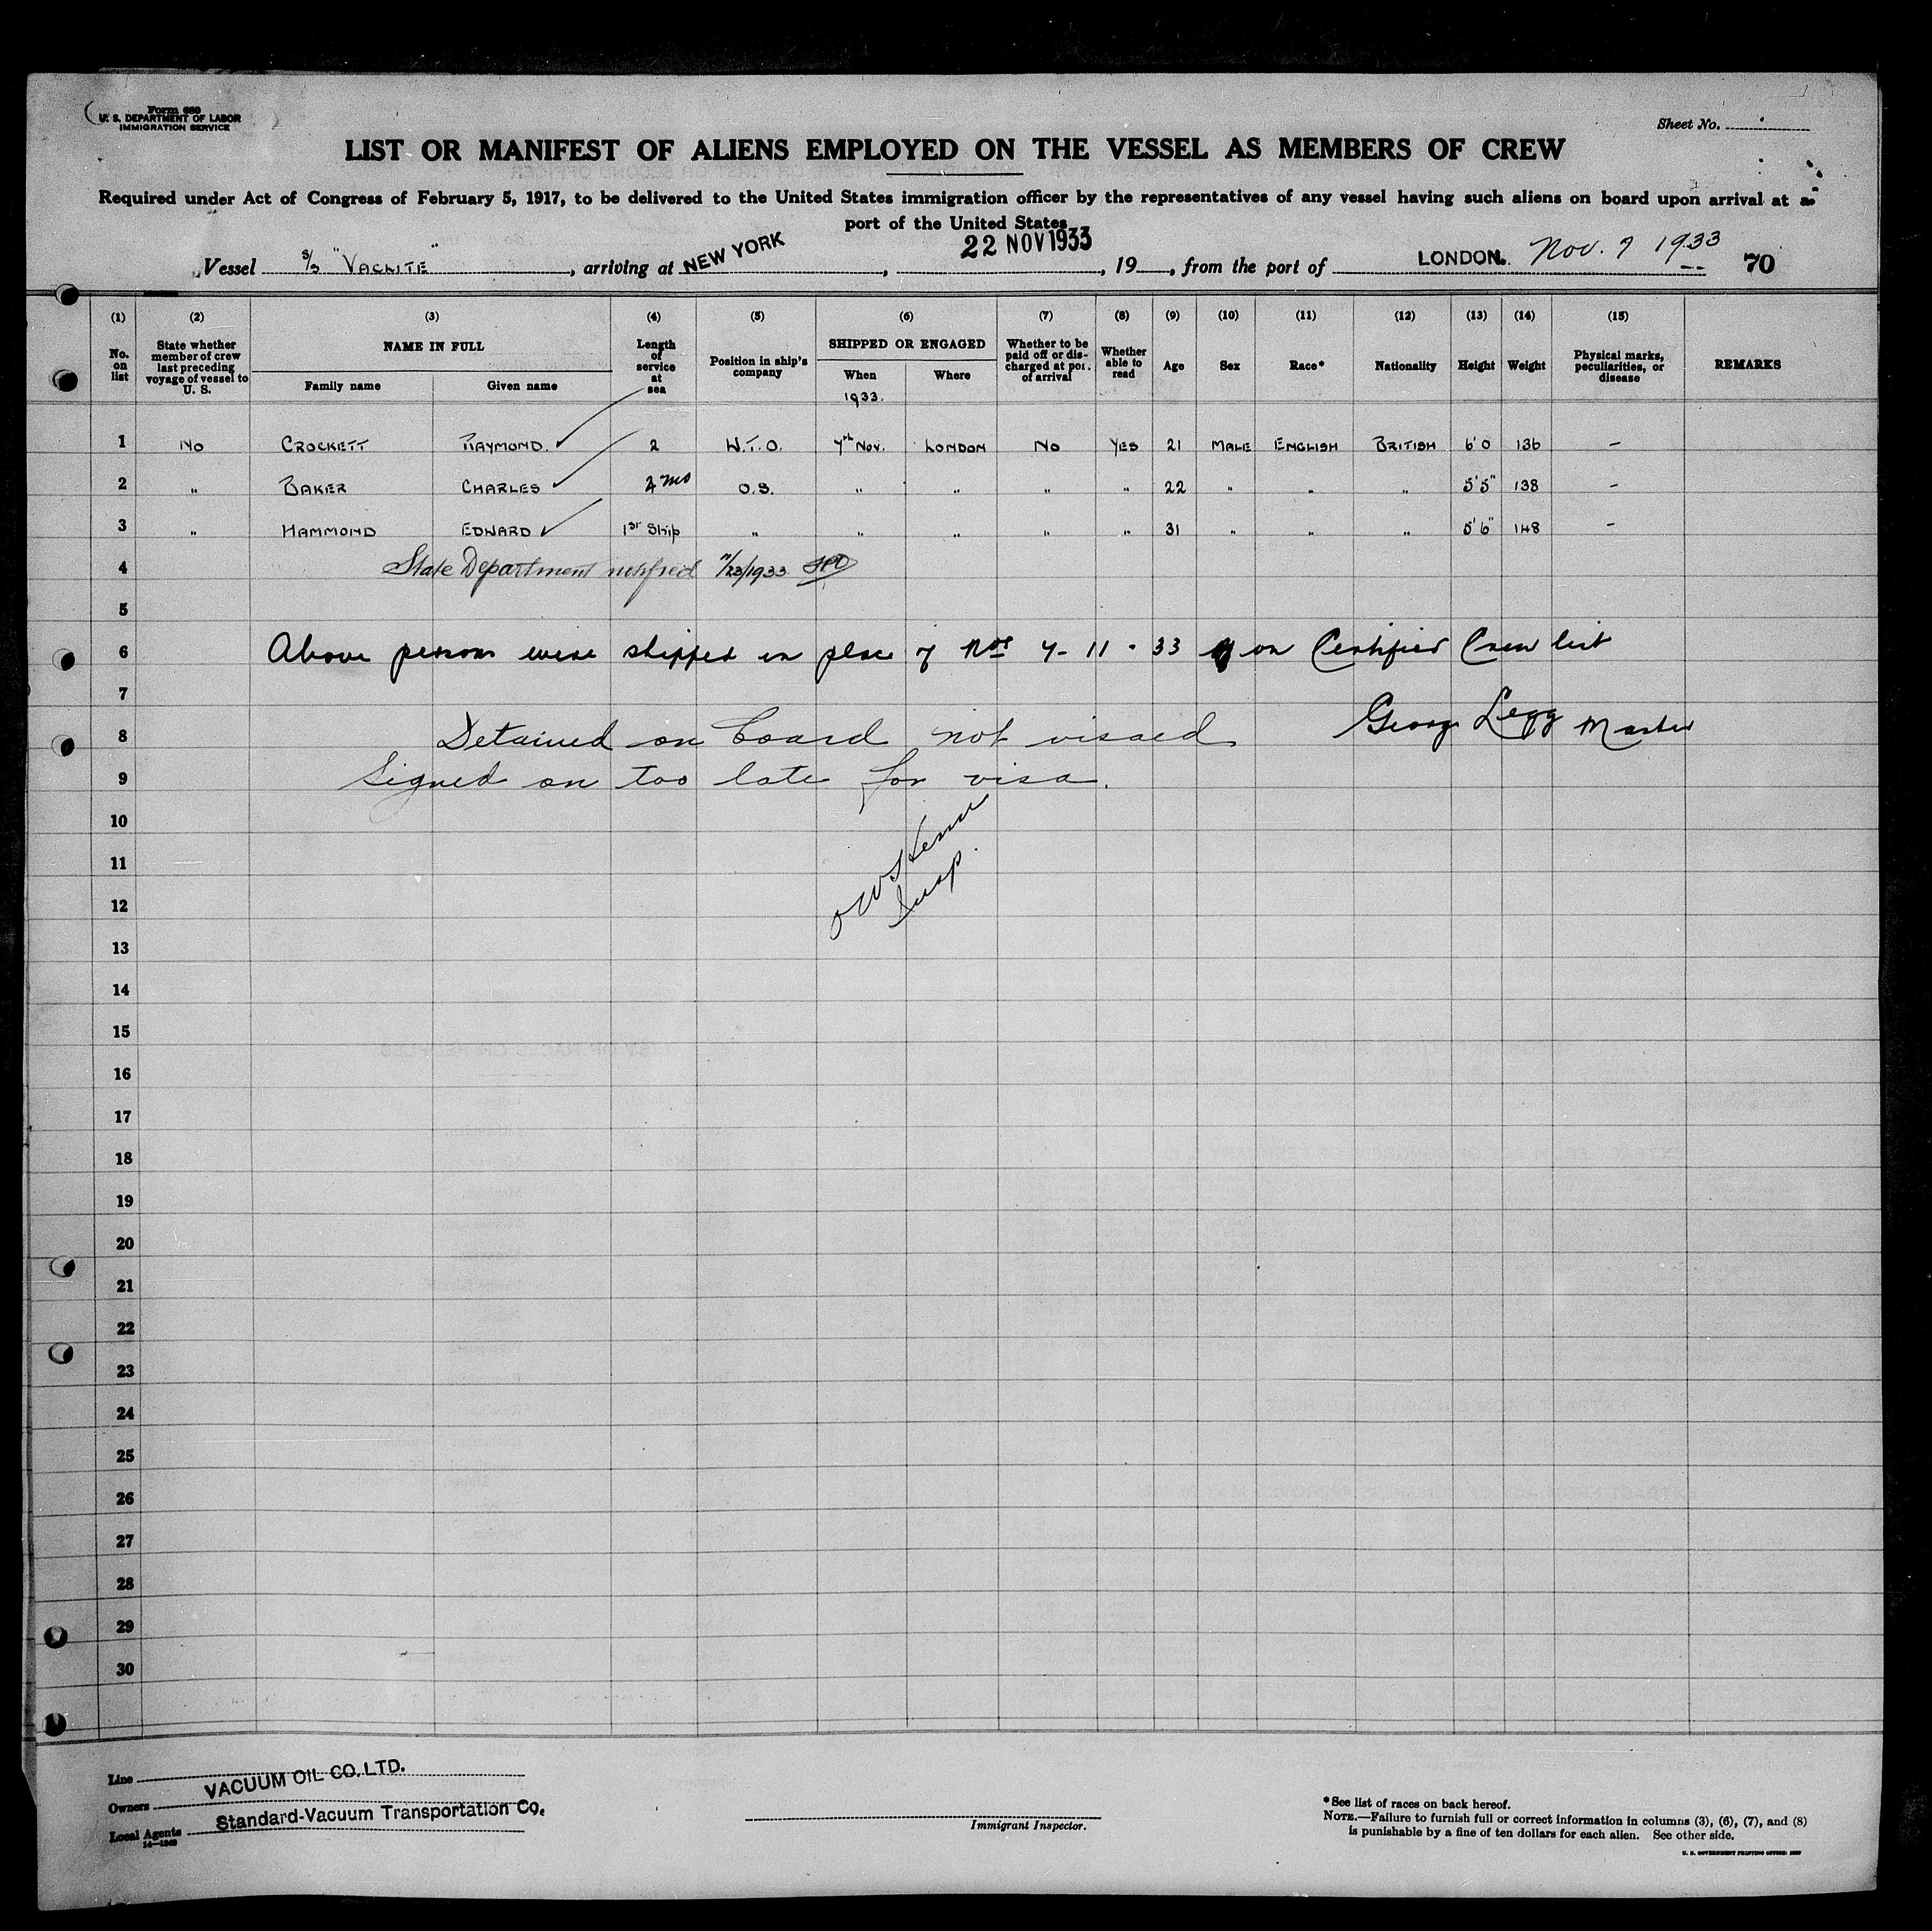 Form 680
U. S. DEPARTMENT OF LABOR
IMMIGRATION SERVICE
Sheet No.
LIST OR MANIFEST OF ALIENS EMPLOYED ON THE VESSEL AS MEMBERS OF CREW
Required under Act of Congress of February 5, 1917, to be delivered to the United States immigration officer by the representatives of any vessel having such aliens on board upon arrival at a
port of the United States
Vessel S/S "VACLITE", arriving at NEW YORK, 22 NOV 1933, 19, from the port of LONDON. Nov. 7 1933 70
(1) (2) (3) (4) (5) (6) (7) (8) (9) (10) (11) (12) (13) (14) (15)
No. on list
State whether member of crew last preceding voyage of vessel to U. S.
NAME IN FULL
Family name Given name
Length of service at sea
Position in ship's company
SHIPPED OR ENGAGED
When Where
1933.
Whether to be paid off or discharged at port of arrival
Whether able to read
Age
Sex
Race*
Nationality
Height
Weight
Physical marks, peculiarities, or disease
REMARKS
1 No CROCKETT RAYMOND. 2 W.T.O. 7th Nov. LONDON No YES 21 MALE ENGLISH BRITISH 6'0 136 –
2 " BAKER CHARLES 2 mo O.S. " " " " 22 " " " 5'5" 138 –
3 " HAMMOND EDWARD 1st Ship " " " " " 31 " " " 5'6" 148 –
4 State Department notified 11/23/1933
5
6 Above persons were shipped in place of Nos 7-11-33 on Certified Crew list
7
George Legg Master
8 Detained on board not visaed
9 Signed on too late for visa.
10
11
Insp.
12
13
14
15
16
17
18
19
20
21
22
23
24
25
26
27
28
29
30
Line
VACUUM OIL CO. LTD.
Owners
Standard-Vacuum Transportation Co.
Local Agents
14—1240
Immigrant Inspector.
*See list of races on back hereof.
NOTE.—Failure to furnish full or correct information in columns (3), (6), (7), and (8)
is punishable by a fine of ten dollars for each alien. See other side.
U. S. GOVERNMENT PRINTING OFFICE: